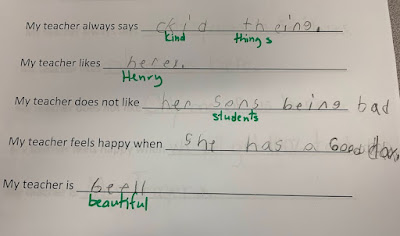 My teacher always says ckid theing.
kind things
My teacher likes heres.
Henry
My teacher does not like her sons being bad
students
My teacher feels happy when she has a Good day.
My teacher is beell
beautiful